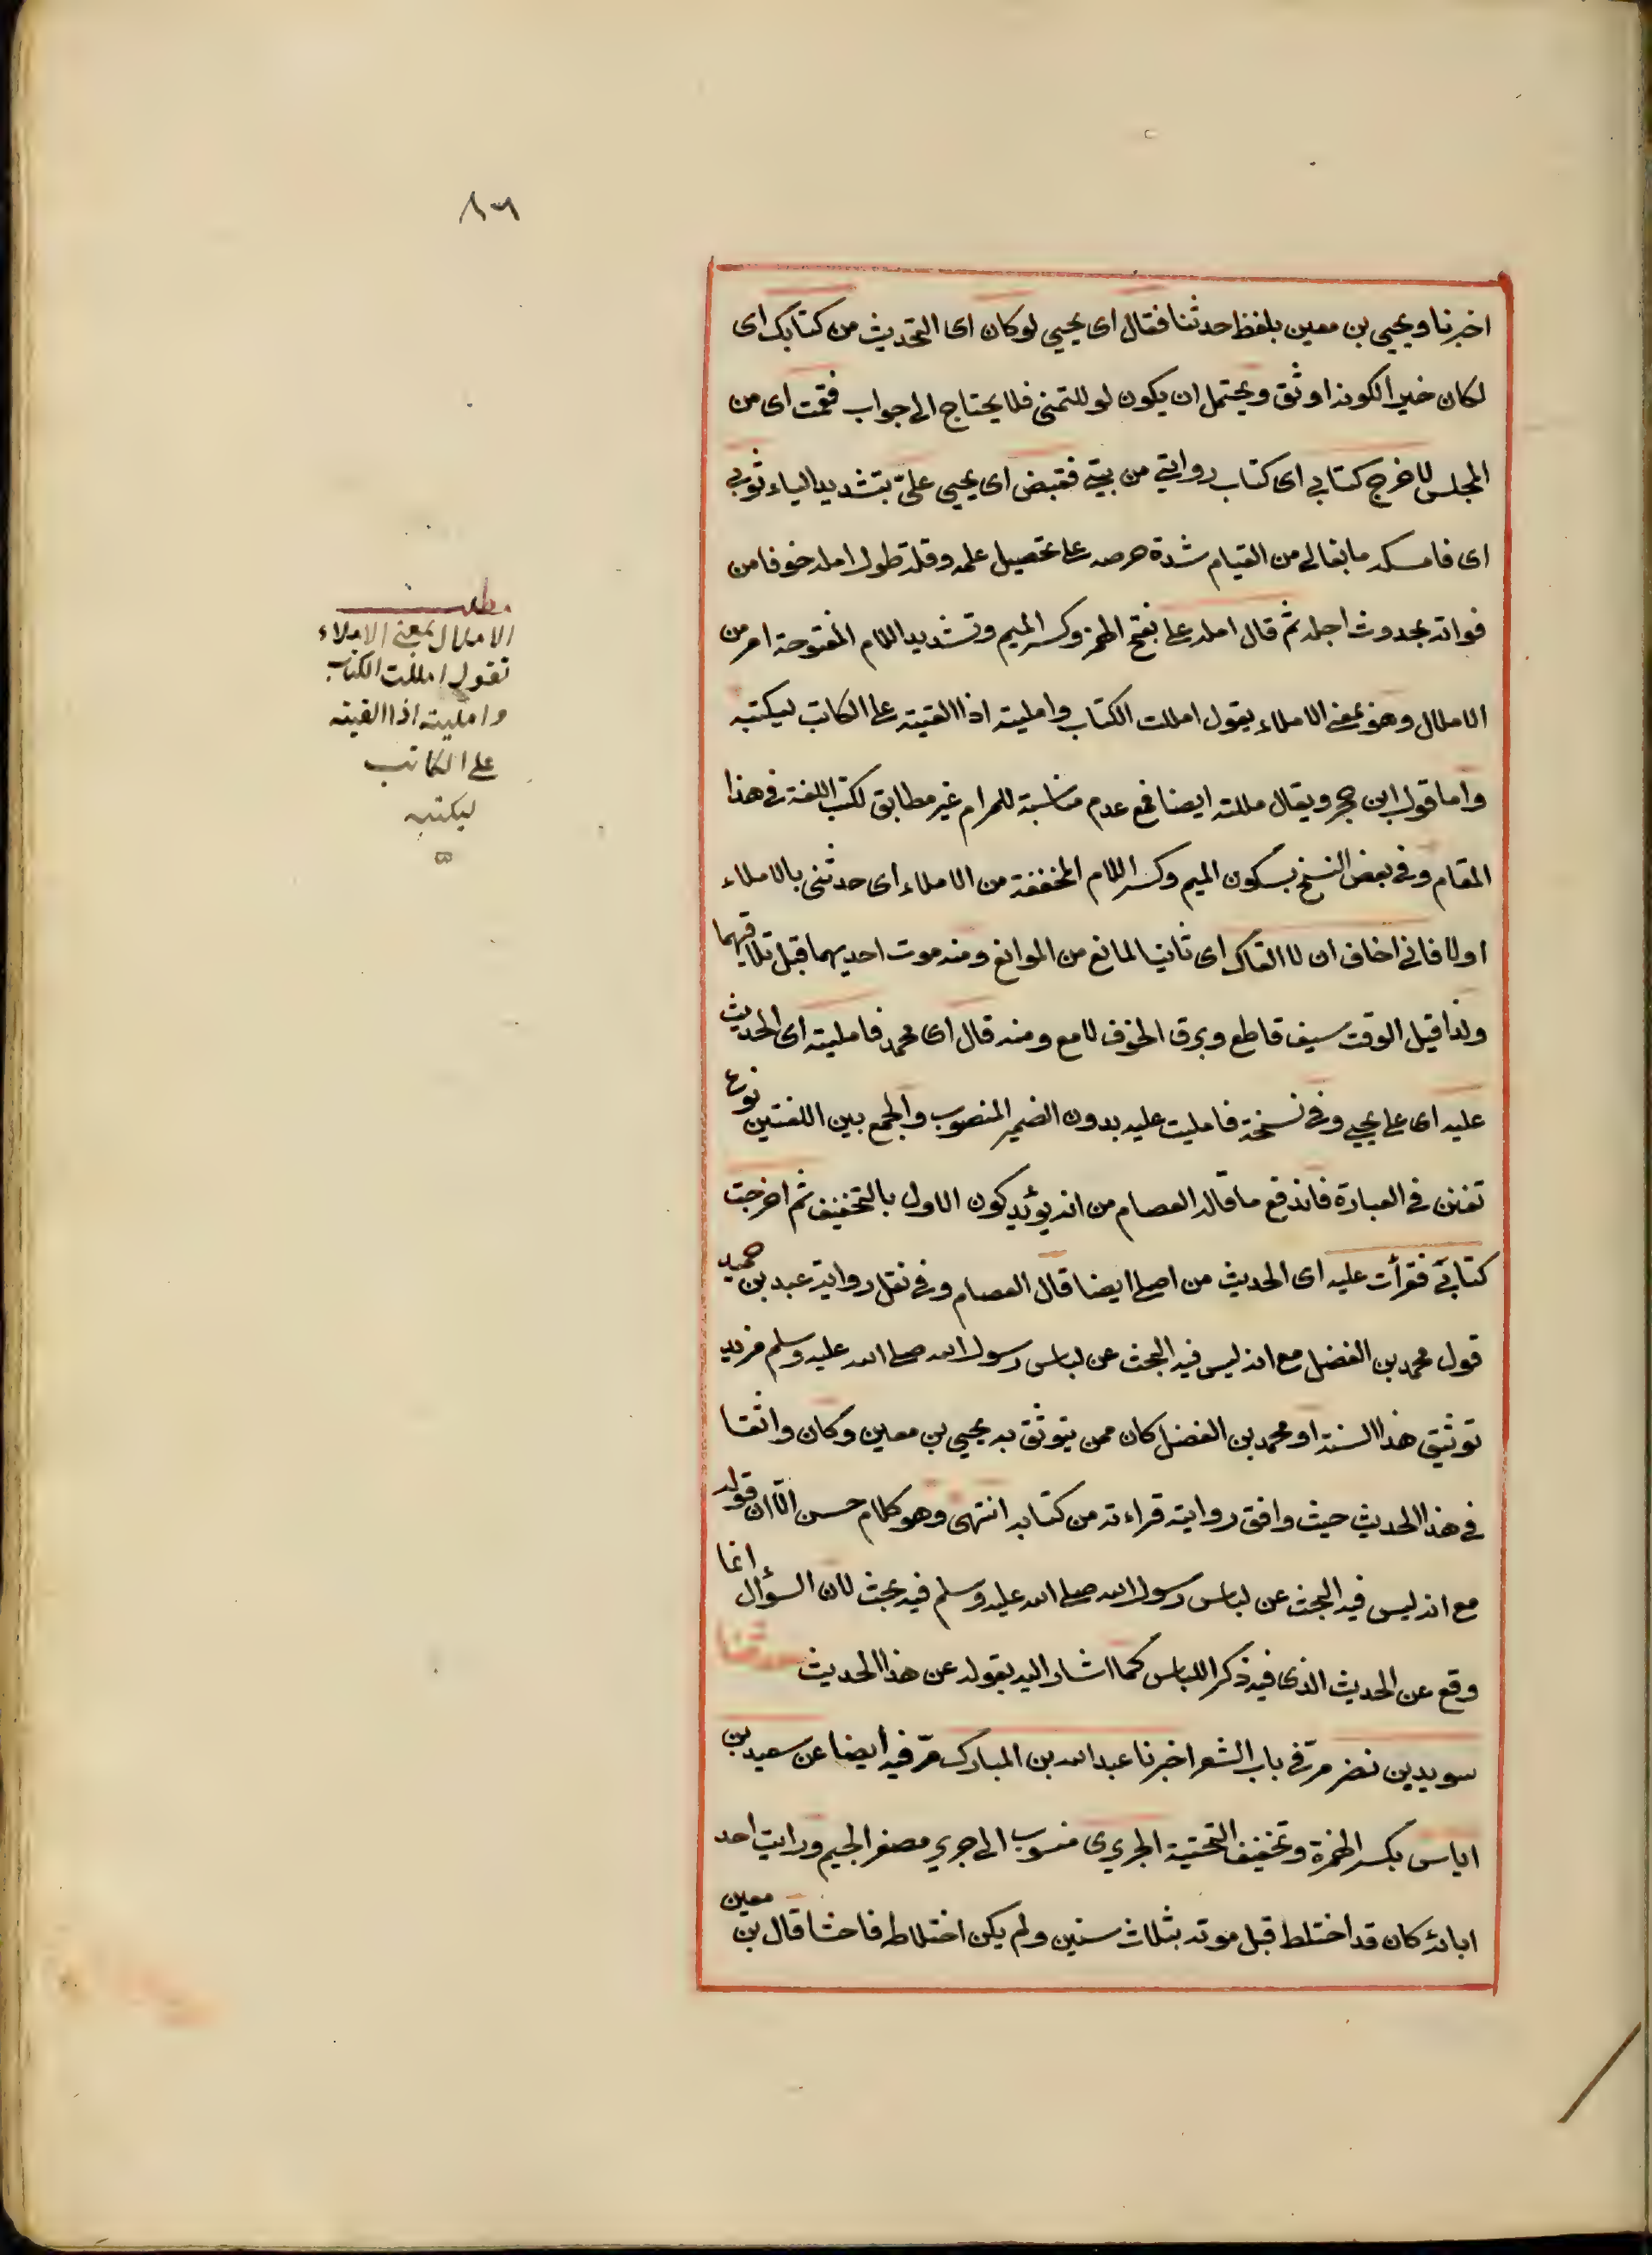 ٨٦
اخبرنا ويحيى بن معين بلفظ حدثنا فقال اى يحيى لوكان اى التحديث من كتابك اى
لكان خيرا لكونه اوثق ويحتمل ان يكون لو للتمنى فلا يحتاج الى جواب فقمت اى من
المجلس لاخرج كتابي اى كتاب روايتي من بيتي فقبض اى يحيى علىّ بتشديد الياء ثوبي
اى فامسكه مانعا لى من القيام شدة حرصه على تحصيل علمه وقلة طول امله خوفا من
فواته بحدوث اجله ثم قال امله على بفتح الهمز وكسر الميم وتشديد اللام المفتوحة امر من
الاملال وهو بمعنى الاملاء يقول امللت الكتاب وامليته اذا القيته على الكاتب ليكتبه
واما قول ابن حجر ويقال مللته ايضا فمع عدم مناسبة للمرام غير مطابق لكتب اللغة في هذا
المقام وفي بعض النسخ بسكون الميم وكسر اللام المخففة من الاملاء اى حدثنى بالاملاء
اولا فانى اخاف ان لا القاك اى ثانيا لمانع من الموانع ومنه موت احديهما قبل تلاقيهما
ولذا قيل الوقت سيف قاطع وبرق الخوف لامع ومنه قال اى محمد فامليته اى الحديث
عليه اى على يحيى وفي نسخة فامليت عليه بدون الضمير المنصوب والجمع بين اللغتين نوع
تفنن في العبارة فاندفع ما قاله العصام من انه يؤيد كون الاول بالتخفيف ثم اخرجت
كتابي فقرأت عليه اى الحديث من اصلى ايضا قال العصام وفي نقل رواية عبد بن حميد
قول محمد بن الفضل مع انه ليس فيه البحث عن لباس رسول الله صلى الله عليه وسلم مزيد
توثيق هذا السند او محمد بن الفضل كان ممن يتوثق به يحيى بن معين وكان واثقا
في هذا الحديث حيث وافق روايته قراءته من كتابه انتهى وهو كلام حسن الّا ان قوله
مع انه ليس فيه البحث عن لباس رسول الله صلى الله عليه وسلم فيه بحث لان السؤال انما
وقع عن الحديث الذى فيه ذكر اللباس كما اشار اليه بقوله عن هذا الحديث حدثنا
سويد بن نصر مرّ في باب الشعر اخبرنا عبد الله بن المبارك مرّ فيه ايضا عن سعيد بن
اياس بكسر الهمزة وتخفيف التحتية الجريرى منسوب الى جرير مصغر الجيم ورايت احد
ابائه كان قد اختلط قبل موته بثلاث سنين ولم يكن اختلاط فاحشا قال بن معين
مطلب
الاملال بمعنى الاملاء
تقول امللت الكتاب
وامليته اذا القيته
على الكاتب
ليكتبه